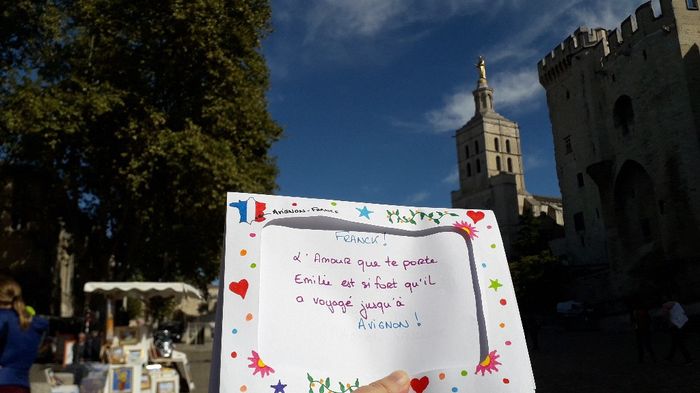 AVIGNON-FRANCE
FRANCK!
L'Amour que te porte
Emilie est si fort qu'il
a voyagé jusqu'à
AVIGNON!